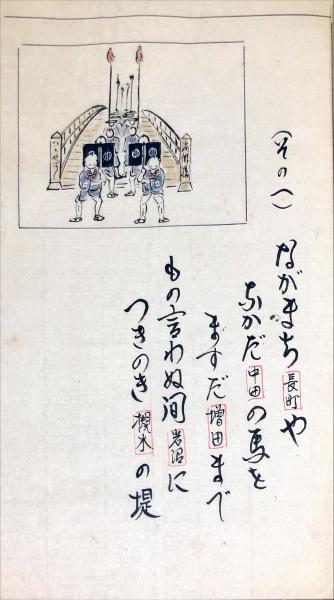 (その一)
ながまち長町や
なかだ中田の馬を
ますだ増田まで
もの言わぬ間岩沼に
つきのき槻木の堤